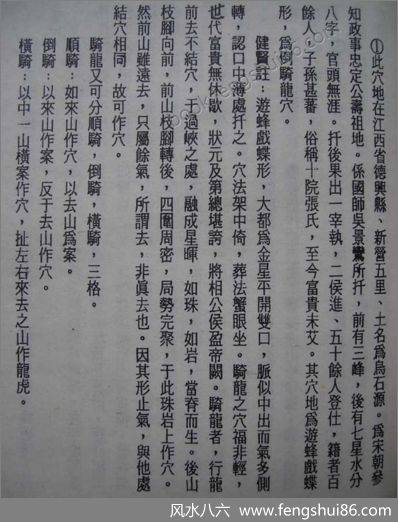 ①此穴地在江西省德興縣、新營五里、土名爲烏石源。爲宋朝參
知政事忠定公壽祖地。係國師吳景鸞所扦，前有三峰，後有七星水分
八字，官頭無涯。扦後果出一宰執，二侯進、五十餘人登仕，籍者百
餘人，子孫甚蕃，俗稱十院張氏，至今富貴未艾。其穴地爲遊蜂戲蝶
形，爲倒騎龍穴。
健賢註：遊蜂戲蝶形，大都爲金星平開雙口，脈似中出而氣多側
轉，認口中薄處扦之。穴法架中倚，葬法蟹眼坐。騎龍之穴福非輕，
也代富貴無休歇，狀元及第總堪誇，將相公侯盈帝闕。騎龍者，行龍
前去不結穴，于過峽之處，融成星暉，如珠，如岩，當脊而生。後山
枝腳向前，前山枝腳轉後，四圍周密，局勢完聚，于此珠岩上作穴。
然前山雖遠去，只屬餘氣，所謂去，非眞去也。因其形止氣，與他處
結穴相同，故可作穴。
騎龍又可分順騎，倒騎，橫騎，三格。
順騎：如來山作穴，以去山爲案。
倒騎：以來山作案，反于去山作穴。
橫騎：以中一山橫案作穴，扯左右來去之山作龍虎。
风水八六 - www.fengshui86.com